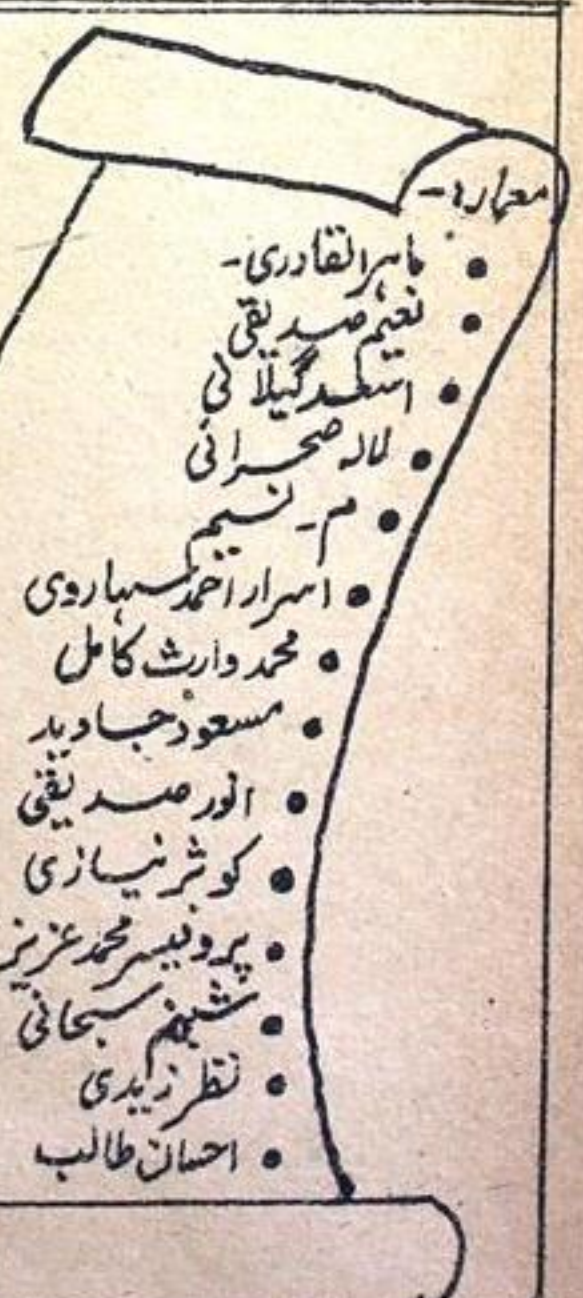 معمارہ:-
• ماہر القادری-
• نعیم صدیقی
• اسعد گیلانی
• لالہ صحرائی
• م - نسیم
• اسرار احمد سہاروی
• محمد وارث کامل
• مسعود جاوید
• انور صدیقی
• کوثر نیازی
• پروفیسر محمد عزیز
• شبنم سبحانی
• نظر زیدی
• احسان طالب